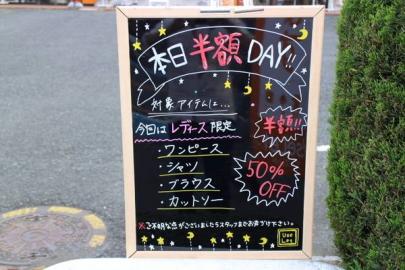 本日半額DAY!!
対象アイテムは...
今回はレディース限定
半額!!
・ワンピース
・シャツ
・ブラウス
・カットソー
50%
OFF
※ご不明な点がございましたらスタッフまでお声がけ下さい。
Use
Les